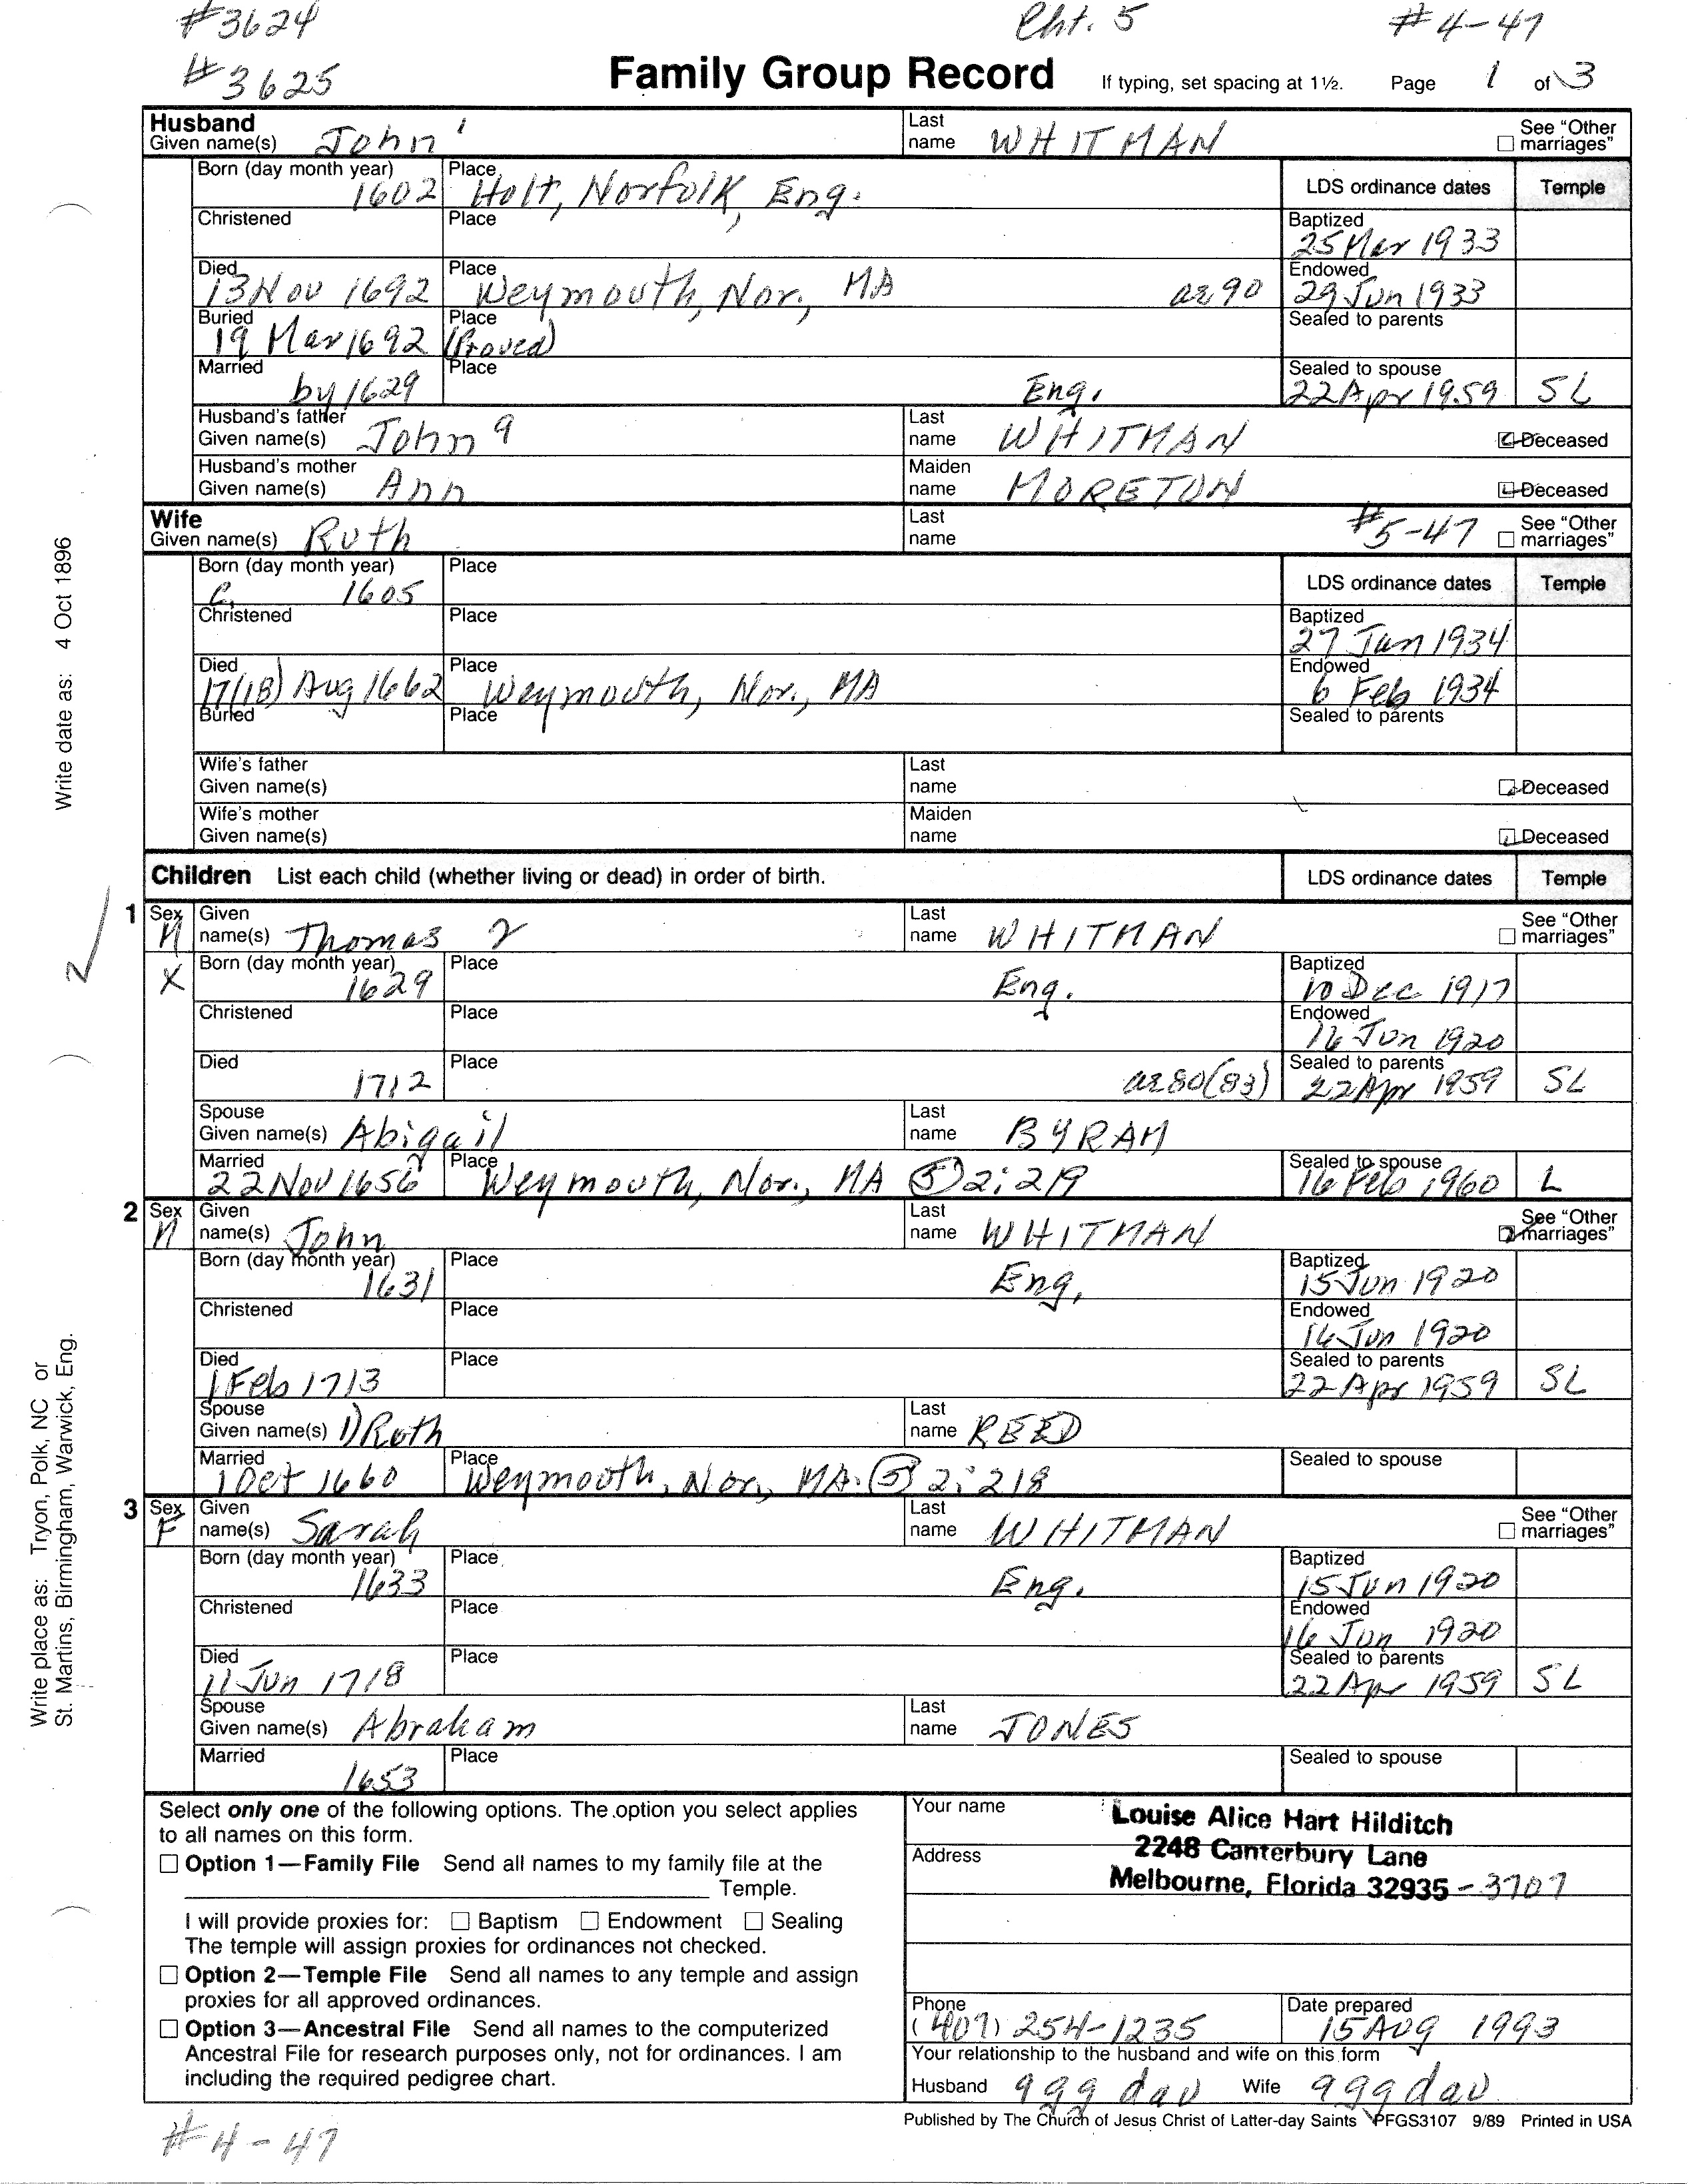 #3624 Cht. 5 #4-47
#3625
Family Group Record If typing, set spacing at 1½. Page 1 of 3
Husband
Given name(s) John 1 Last name WHITMAN See "Other marriages"
Born (day month year) 1602 Place Holt, Norfolk, Eng. LDS ordinance dates Temple
Christened Place Baptized 25 Mar 1933
Died 13 Nov 1692 Place Weymouth, Nor., MA ae 90 Endowed 29 Jun 1933
Buried 19 Mar 1692 (Proved) Place Sealed to parents
Married by 1629 Place Eng. Sealed to spouse 22 Apr 1959 SL
Husband's father
Given name(s) John 9 Last name WHITMAN Deceased
Husband's mother
Given name(s) Ann Maiden name MORETON Deceased
Wife
Given name(s) Ruth Last name #5-47 See "Other marriages"
Born (day month year) C. 1605 Place LDS ordinance dates Temple
Christened Place Baptized 27 Jan 1934
Died 17(18) Aug 1662 Place Weymouth, Nor., MA Endowed 6 Feb 1934
Buried Place Sealed to parents
Wife's father
Given name(s) Last name Deceased
Wife's mother
Given name(s) Maiden name Deceased
Children List each child (whether living or dead) in order of birth. LDS ordinance dates Temple
1 Sex M Given name(s) Thomas 2 Last name WHITMAN See "Other marriages"
X Born (day month year) 1629 Place Eng. Baptized 10 Dec 1917
Christened Place Endowed 16 Jun 1920
Died 1712 Place ae 80(83) Sealed to parents 22 Apr 1959 SL
Spouse
Given name(s) Abigail Last name BYRAM
Married 22 Nov 1656 Place Weymouth, Nor., MA (5) 2:219 Sealed to spouse 16 Feb 1960 L
2 Sex M Given name(s) John Last name WHITMAN See "Other marriages"
Born (day month year) 1631 Place Eng. Baptized 15 Jun 1920
Christened Place Endowed 16 Jun 1920
Died 1 Feb 1713 Place Sealed to parents 22 Apr 1959 SL
Spouse
Given name(s) 1) Ruth Last name REED
Married 1 Oct 1660 Place Weymouth, Nor., MA. (5) 2:218 Sealed to spouse
3 Sex F Given name(s) Sarah Last name WHITMAN See "Other marriages"
Born (day month year) 1633 Place Eng. Baptized 15 Jun 1920
Christened Place Endowed 16 Jun 1920
Died 11 Jun 1718 Place Sealed to parents 22 Apr 1959 SL
Spouse
Given name(s) Abraham Last name JONES
Married 1653 Place Sealed to spouse
Write date as: 4 Oct 1896
2
Write place as: Tryon, Polk, NC or
St. Martins, Birmingham, Warwick, Eng.
Select only one of the following options. The option you select applies
to all names on this form.
Option 1—Family File Send all names to my family file at the
Temple.
I will provide proxies for: Baptism Endowment Sealing
The temple will assign proxies for ordinances not checked.
Option 2—Temple File Send all names to any temple and assign
proxies for all approved ordinances.
Option 3—Ancestral File Send all names to the computerized
Ancestral File for research purposes only, not for ordinances. I am
including the required pedigree chart.
Your name Louise Alice Hart Hilditch
Address 2248 Canterbury Lane
Melbourne, Florida 32935-3707
Phone (407) 254-1235 Date prepared 15 Aug 1993
Your relationship to the husband and wife on this form
Husband 9 gg dau Wife 9 gg dau
Published by The Church of Jesus Christ of Latter-day Saints PFGS3107 9/89 Printed in USA
#4-47